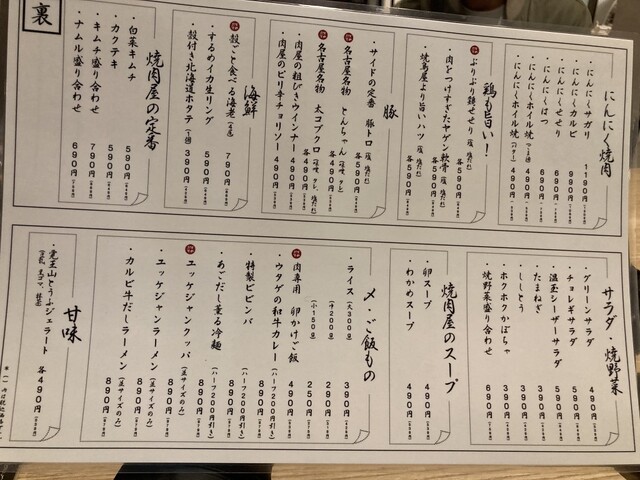 裏
にんにく焼肉
・にんにくサガリ 1190円
・にんにくカルビ 990円
・にんにくせせり 690円
・にんにくはつ 690円
・にんにくホイル焼 490円
・にんにくホイル焼(バター) 490円
鶏も旨い!
・ぷりぷり鶏せせり 各590円
・肉をつけすぎたヤゲン軟骨 各590円
・焼鳥屋より旨いハツ 各590円
豚
・サイドの定番 豚トロ 各590円
名古屋名物 とんちゃん 各490円
名古屋名物 大コブクロ 各490円
・肉屋の粗びきウインナー 490円
・肉屋のピリ辛チョリソー 490円
海鮮
・殻ごと食べる海老 790円
・するめイカ生リング 590円
・殻付き北海道ホタテ 390円
焼肉屋の定番
・白菜キムチ 590円
・カクテキ 590円
・キムチ盛り合わせ 790円
・ナムル盛り合わせ 690円
サラダ・焼野菜
・グリーンサラダ 490円
・チョレギサラダ 590円
・温玉シーザーサラダ 590円
・たまねぎ 390円
・ししとう 390円
・ホクホクかぼちゃ 390円
・焼野菜盛り合わせ 690円
焼肉屋のスープ
・卵スープ 490円
・わかめスープ 490円
〆・ご飯もの
・ライス(大300g) 390円
(中200g) 290円
(小150g) 250円
・肉専用 卵かけご飯 490円
・ウタゲの和牛カレー(ハーフ200円引き) 890円
・特製ビビンバ(ハーフ200円引き) 890円
・あごだし薫る冷麺(ハーフ200円引き) 890円
・エッケジャンクッパ(並サイズのみ) 890円
・エッケジャンラーメン(並サイズのみ) 890円
・カルビ牛だしラーメン(並サイズのみ) 890円
甘味
・覚王山とうふジェラート 各490円